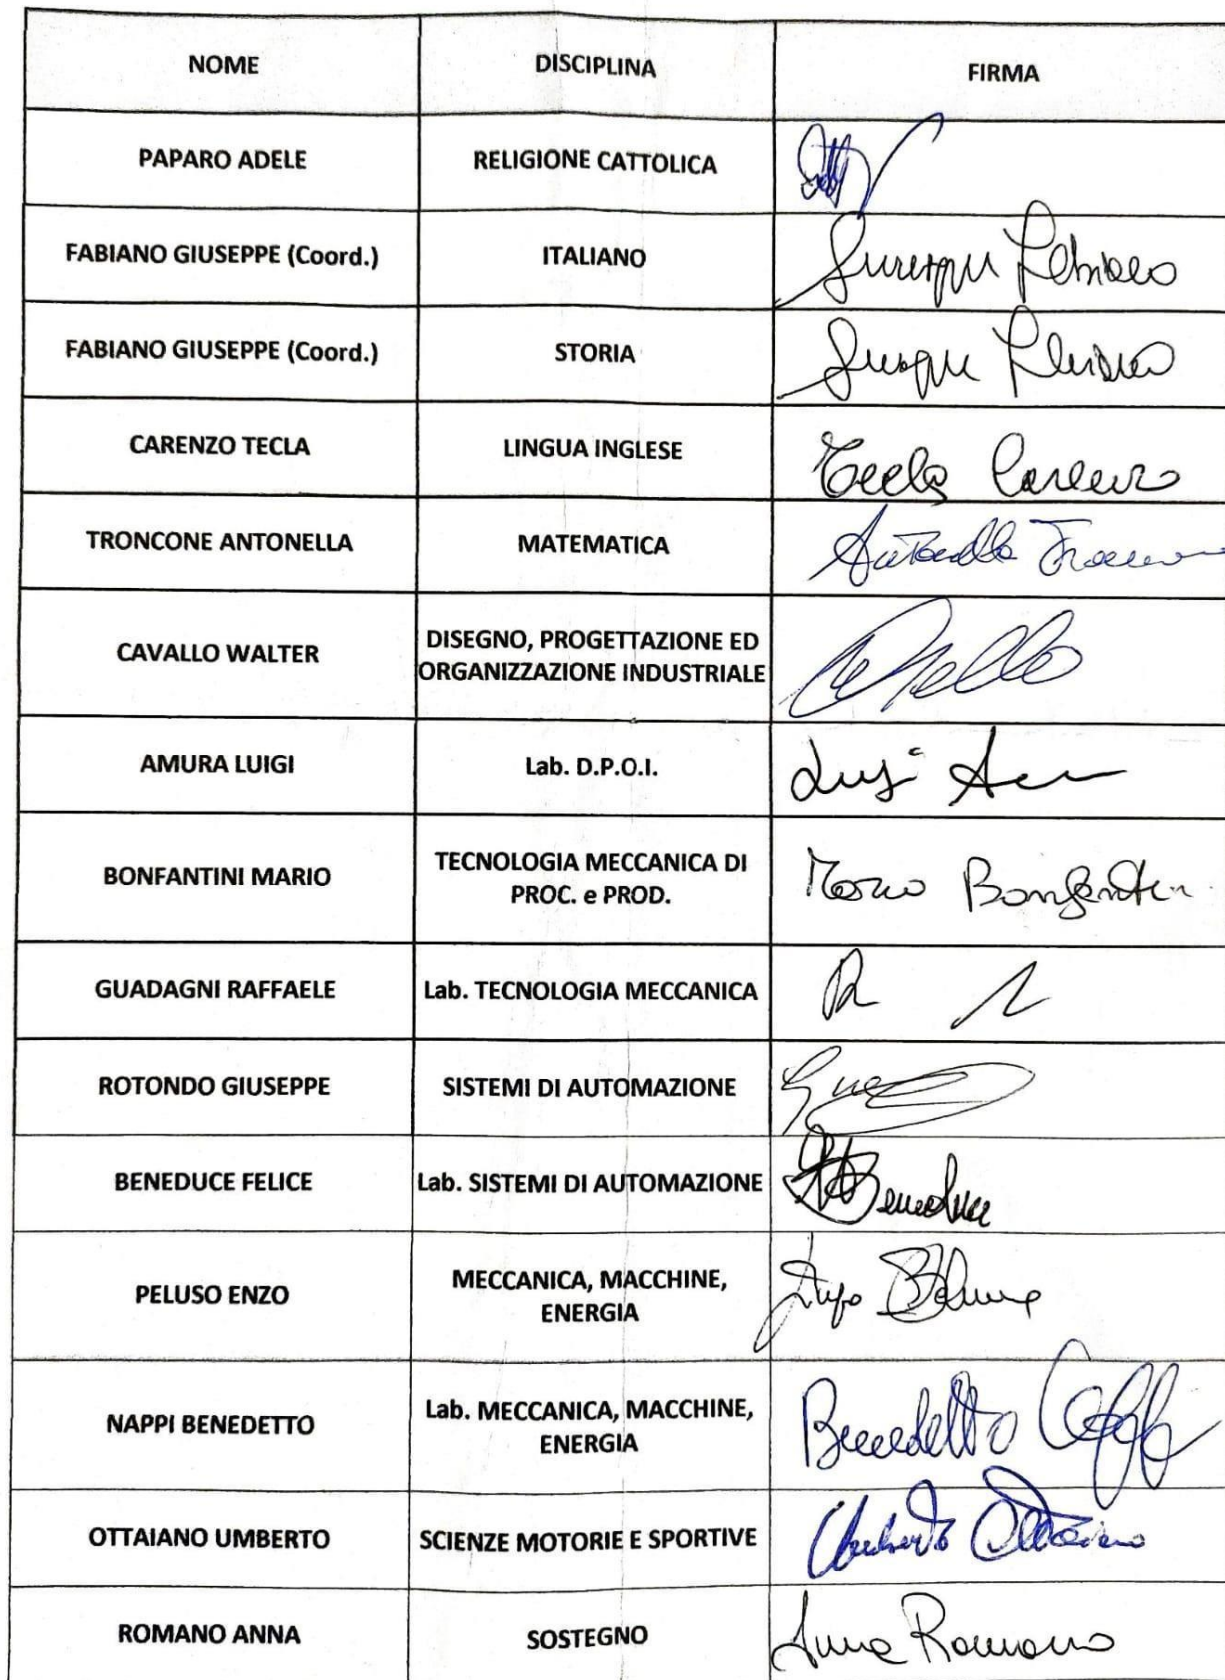 NOME DISCIPLINA FIRMA
PAPARO ADELE RELIGIONE CATTOLICA
FABIANO GIUSEPPE (Coord.) ITALIANO Giuseppe Fabiano
FABIANO GIUSEPPE (Coord.) STORIA Giuseppe Fabiano
CARENZO TECLA LINGUA INGLESE Tecla Carenzo
TRONCONE ANTONELLA MATEMATICA Antonella
CAVALLO WALTER DISEGNO, PROGETTAZIONE ED
ORGANIZZAZIONE INDUSTRIALE
AMURA LUIGI Lab. D.P.O.I. Luigi
BONFANTINI MARIO TECNOLOGIA MECCANICA DI
PROC. e PROD. Mario Bonfantini
GUADAGNI RAFFAELE Lab. TECNOLOGIA MECCANICA
ROTONDO GIUSEPPE SISTEMI DI AUTOMAZIONE
BENEDUCE FELICE Lab. SISTEMI DI AUTOMAZIONE Beneduce
PELUSO ENZO MECCANICA, MACCHINE,
ENERGIA
NAPPI BENEDETTO Lab. MECCANICA, MACCHINE,
ENERGIA Benedetto
OTTAIANO UMBERTO SCIENZE MOTORIE E SPORTIVE Umberto Ottaiano
ROMANO ANNA SOSTEGNO Anna Romano